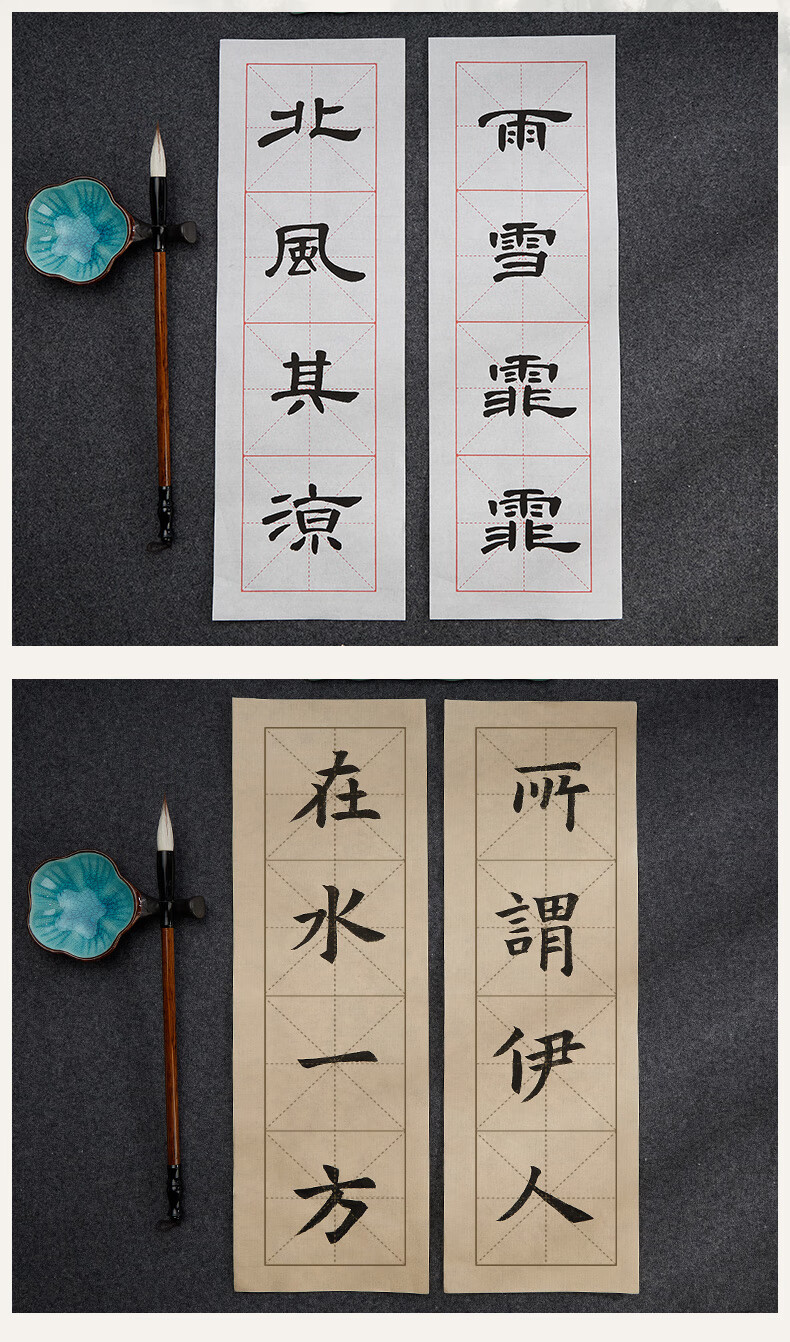 雨雪霏霏
北風其涼
所謂伊人
在水一方